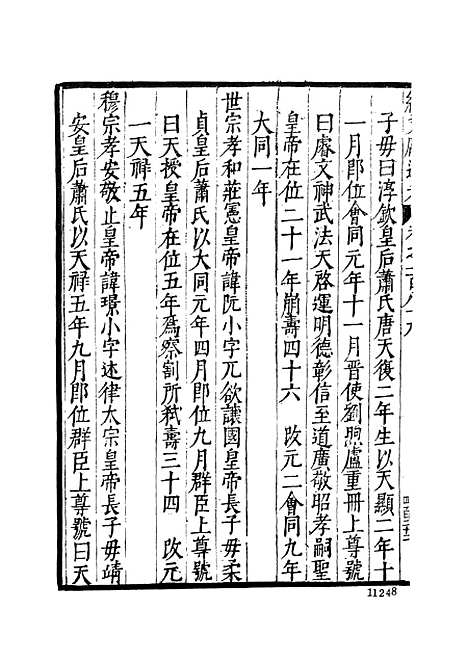 子母曰淳欽皇后蕭氏唐天復二年生以天顯二年十
一月卽位會同元年十一月晉使劉煦盧重冊上尊號
曰睿文神武法天啓運明德彰信至道廣敬昭孝嗣聖
皇帝在位二十一年崩壽四十六 改元二會同九年
大同一年
世宗孝和莊憲皇帝諱阮小字兀欲讓國皇帝長子母柔
貞皇后蕭氏以大同元年四月卽位九月群臣上尊號
曰天授皇帝在位五年爲察割所弒壽三十四 改元
一天祿五年
穆宗孝安敬止皇帝諱璟小字述律太宗皇帝長子母靖
安皇后蕭氏以天祿五年九月卽位群臣上尊號曰天
11248